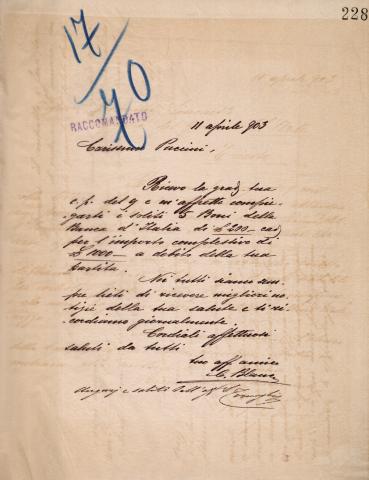 228
17/70
RACCOMANDATO
11 aprile 903
Carissimo Puccini,
Ricevo la grad. tua
c.p. del 9 e m'affretto compie-
garti i soliti 5 Boni della
Banca d'Italia di £ 200 cad
per l'importo complessivo di
£ 1000 — a debito della tua
partita.
Noi tutti siamo sem-
pre lieti di ricevere migliori no-
tizie della tua salute e ti ri-
cordiamo giornalmente.
Cordiali affettuosi
saluti da tutti
tuo aff. amico
C. Blanc
Auguri e saluti dall'